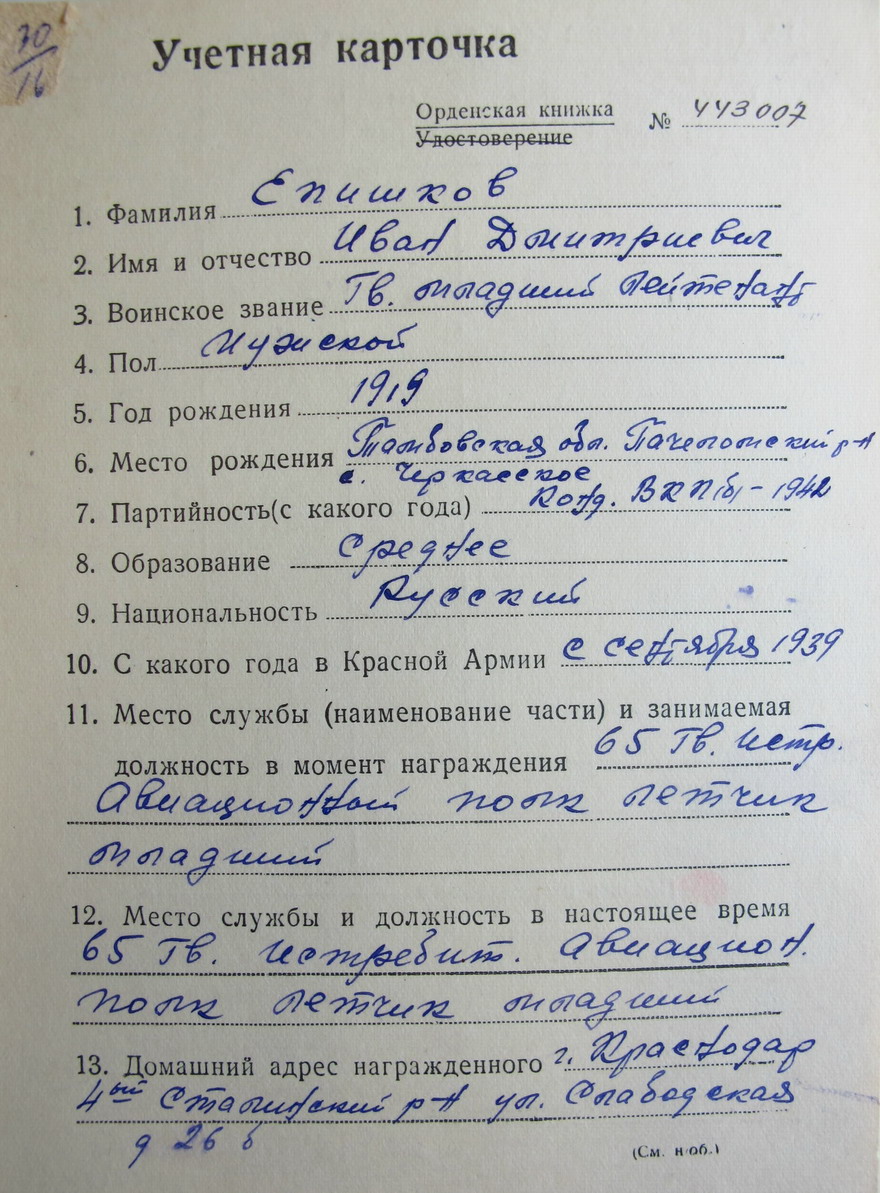 30
16
Учетная карточка
Орденская книжка № 443007
Удостоверение
1. Фамилия Епишков
2. Имя и отчество Иван Дмитриевич
3. Воинское звание Гв. младший лейтенант
4. Пол Мужской
5. Год рождения 1919
6. Место рождения Тамбовская обл. Пачелмский р-н
с. Черкасское
7. Партийность(с какого года) Канд. ВКП(б) - 1942
8. Образование Среднее
9. Национальность Русский
10. С какого года в Красной Армии с сентября 1939
11. Место службы (наименование части) и занимаемая
должность в момент награждения 65 Гв. Истр.
Авиационный полк летчик
младший
12. Место службы и должность в настоящее время
65 Гв. Истребит. Авиацион.
полк летчик младший
13. Домашний адрес награжденного г. Краснодар
4ый Сталинский р-н ул. Слабодская
д 26 б
(См. н об.)